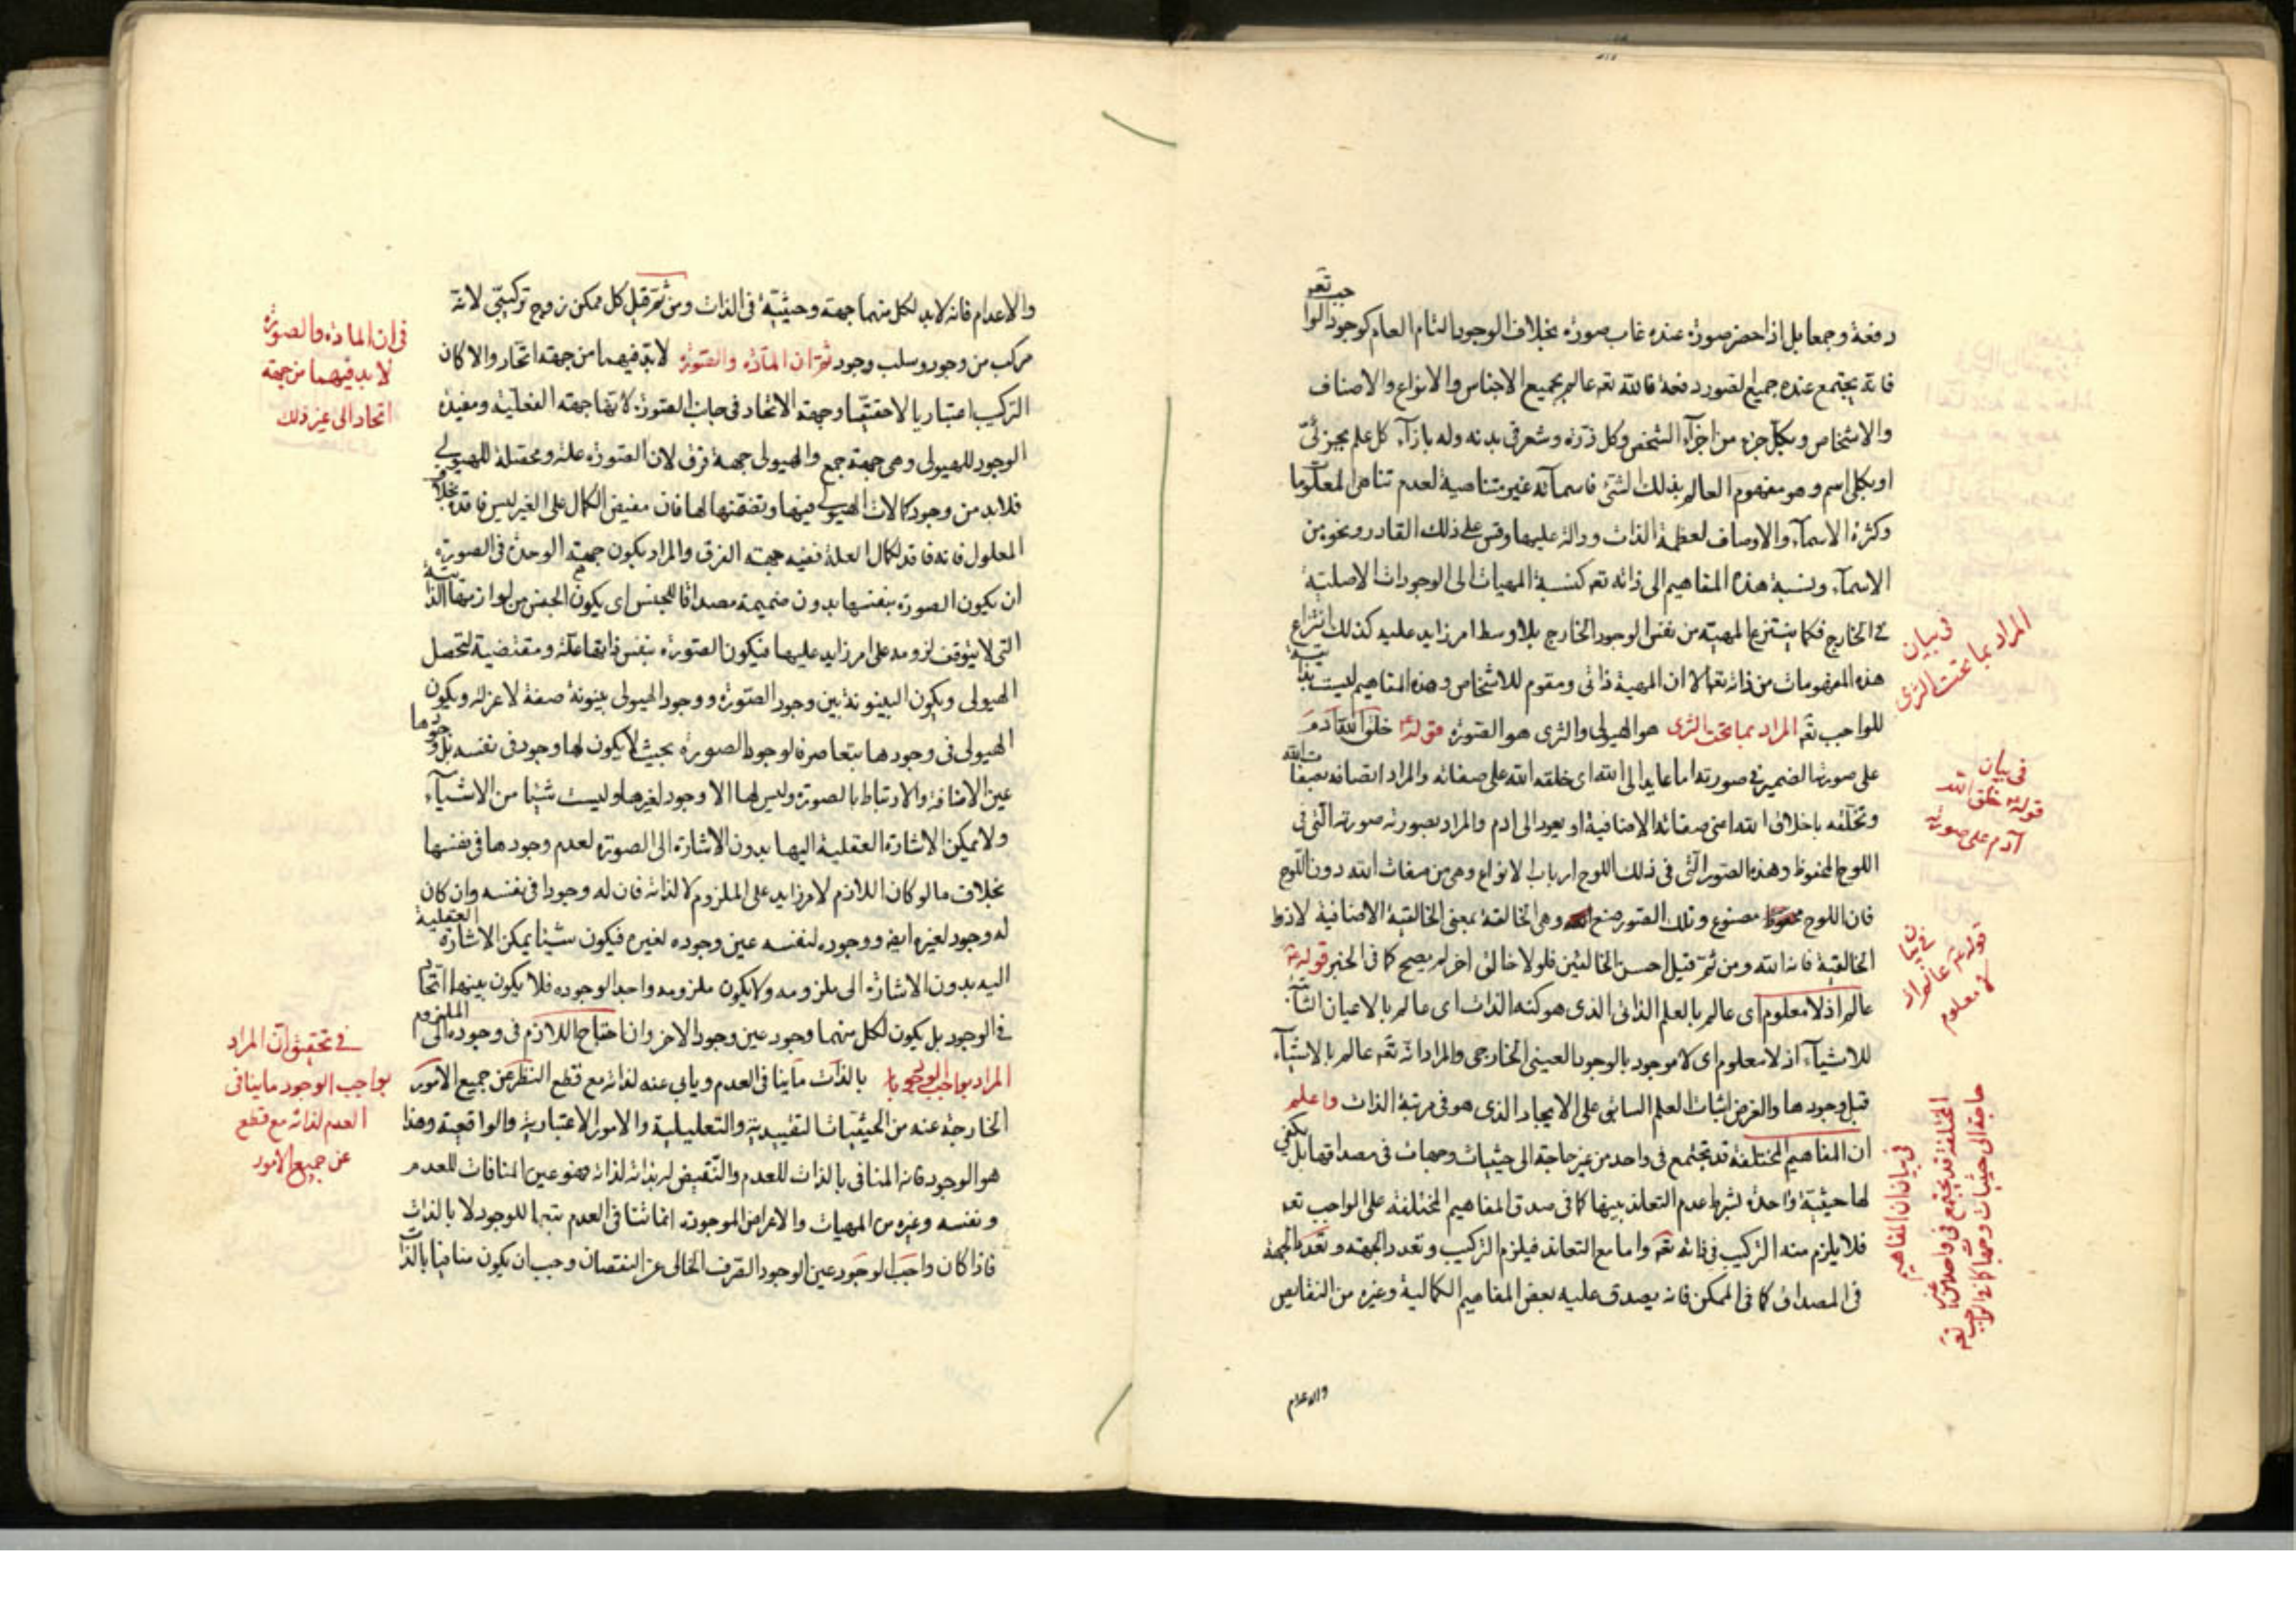 دفعة وجمعا بل اذا حضر صورة عنده غاب صورة بخلاف الوجود التام العام كوجود الواجب تعه
فانه يجتمع عنده جميع الصور دفعة فالله تعه عالم بجميع الاجناس والانواع والاصناف
والاشخاص وبكل جزء من اجزآء الشخص وكل ذرة وشعر فى بدنه وله بازآء كل علم بجزئىّ
او بكلى اسم وهو مفهوم العالم بذلك الشئ فاسمآئه غير متناهية لعدم تناهى المعلوما
وكثرة الاسمآء والاوصاف لعظمة الذات ودالة عليها وقس على ذلك القادر ونحو من
الاسمآء ونسبة هذه المفاهيم الى ذاته تعه كنسبة المهيات الى الوجودات الاصلية
فى الخارج فكما ينتزع المهية من نفس الوجود الخارج بلا وسط امر زايد عليه كذلك انتزاع
هذه المفهومات من ذاته تعه الا ان المهية ذاتى ومقوم للاشخاص وهذه المفاهيم ليست بذاتية
للواجب تعه المراد بما تحت الثرى هو الهيولى والثرى هو الصورة قوله خلق الله آدم
على صورته الضمير فى صورته اما عايد الى الله اى خلقه الله على صفاته والمراد اتصافه بصفات الله
وتخلقه باخلاق الله اعنى صفاته الاضافية او يعود الى ادم والمراد بصورته صورته التى فى
اللوح المحفوظ وهذه الصور التى فى ذلك اللوح ارباب لانواع وهى من صفات الله دون اللوح
فان اللوح مصنوع وتلك الصور صنع وهى الخالقة بمعنى الخالقية الاضافية لا ذو
الخالقية فانه الله ومن ثم قيل احسن الخالقين فلولا خالق اخر لم يصح كما فى الخبر قوله
عالم اذ لا معلوم اى عالم بالعلم الذاتى الذى هو كنه الذات اى عالم بالاعيان
للاشيآء اذ لا معلوم اى لا موجود بالوجود العينى الخارجى والمراد انه تعه عالم بالاشيآء
قبل وجودها والغرض اثبات العلم السابق على الايجاد الذى هو فى مرتبة الذات واعلم
ان المفاهيم المختلفة قد تجتمع فى واحد من غير حاجة الى حيثيات وجهات فى مصداقها بل يكفى
لها حيثية واحدة بشرط عدم التعاند بينها كما فى صدق المفاهيم المختلفة على الواجب تعه
فلا يلزم منه التركيب فى ذاته تعه واما مع التعاند فيلزم التركيب وتعدد الجهة وتعدد الجهة
فى المصداق كما فى الممكن فانه يصدق عليه بعض المفاهيم الكمالية وغيره من النقايص
والاعدام
فى بيان
المراد بما تحت الثرى
فى بيان
قوله خلق الله
آدم على صورته
فى بيان
قوله عالم اذ
لا معلوم
فى بيان ان المفاهيم
المختلفة قد تجتمع فى واحد من غير
حاجة الى حيثيات وجهات كما فى الواجب تعه
والاعدام فانه لابد لكل منهما جهة وحيثية فى الذات ومن ثم قيل كل ممكن زوج تركيبىّ لانه
مركب من وجود وسلب وجود ثم ان المادة والصورة لابد فيهما من جهة اتحاد والا كان
التركيب اعتباريا لا حقيقيا وجهة الاتحاد فى جانب الصورة لانها جهة الفعلية ومفيدة
الوجود للهيولى وهى جهة جمع والهيولى جهة فرق لان الصورة علة ومحصلة للهيولى
فلابد من وجود كمالات الهيولى فيها وتضمنها لها فان مفيض الكمال على الغير ليس فاقده بخلاف
المعلول فانه فاقد لكمال العلة ففيه جهة الفرق والمراد بكون جهة الوحدة فى الصورة
ان يكون الصورة بنفسها بدون ضميمة مصداقا للجنس اى يكون الجنس من لوازمها الذاتية
التى لا يتوقف لزومه على امر زايد عليها فيكون الصورة بنفس ذاتها علة ومقتضية لتحصل
الهيولى ويكون البينونة بين وجود الصورة ووجود الهيولى بينونة صفة لا عزلة ويكون
الهيولى فى وجودها بتعا صرفا لوجود الصورة بحيث لا يكون لها وجود فى نفسه بل وجودها
عين الاضافة والارتباط بالصورة وليس لها الا وجود لغيرها وليست شيئا من الاشيآء
ولا يمكن الاشارة العقلية اليها بدون الاشارة الى الصورة لعدم وجودها فى نفسها
بخلاف ما لو كان اللازم لامر زايد على الملزوم لا لذاته فان له وجودا فى نفسه وان كان
له وجود لغيره ايضا ووجوده لنفسه عين وجوده لغيره فيكون شيئا يمكن الاشارة العقلية
اليه بدون الاشارة الى ملزومه ولا يكون ملزومه واجد الوجوده فلا يكون بينهما اتحاد
فى الوجود بل يكون لكل منهما وجود عين وجود الاخر وان احتاج اللازم فى وجوده الى الملزوم
المراد بواجب الوجود بالذات ما ينافى العدم ويابى عنه لذاته مع قطع النظر عن جميع الامور
الخارجة عنه من الحيثيات التقييدية والتعليلية والامور الاعتبارية والواقعية وهذا
هو الوجود فانه المنافى بالذات للعدم والنقيض له بذاته لذاته فهو عين المنافات للعدم
ونفسه وغيره من المهيات والاعراض الموجودة انما تنافى العدم بتبها للوجود لا بالذات
فاذا كان واجب الوجود عين الوجود الصرف الخالى عن النقصان وجب ان يكون منافيا بالذات
فى ان المادة والصورة
لابد فيهما من جهة
اتحاد الى غير ذلك
فى تحقيق ان المراد
بواجب الوجود ما ينافى
العدم لذاته مع قطع
عن جميع الامور